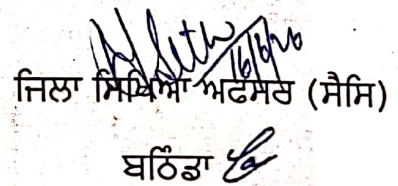 16/6/26
ਜਿਲਾ ਸਿੱਖਿਆ ਅਫਸਰ (ਸੈਸਿ)
ਬਠਿੰਡਾ